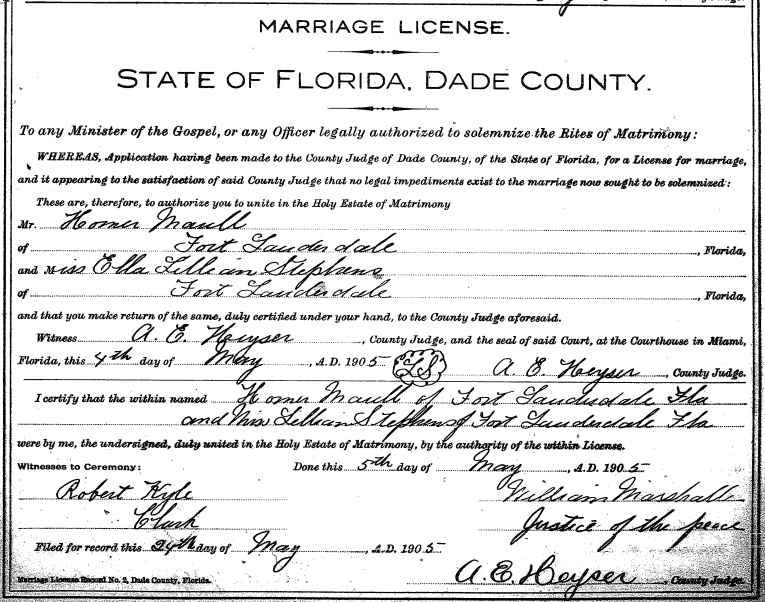 MARRIAGE LICENSE.
STATE OF FLORIDA, DADE COUNTY.
To any Minister of the Gospel, or any Officer legally authorized to solemnize the Rites of Matrimony:
WHEREAS, Application having been made to the County Judge of Dade County, of the State of Florida, for a License for marriage,
and it appearing to the satisfaction of said County Judge that no legal impediments exist to the marriage now sought to be solemnized:
These are, therefore, to authorize you to unite in the Holy Estate of Matrimony
Mr. Homer Maull
of Fort Lauderdale, Florida,
and Miss Ella Lillian Stephens
of Fort Lauderdale, Florida,
and that you make return of the same, duly certified under your hand, to the County Judge aforesaid.
Witness A. E. Heyser, County Judge, and the seal of said Court, at the Courthouse in Miami,
Florida, this 4th day of May, A.D. 1905 LS A. E. Heyser, County Judge.
I certify that the within named Homer Maull of Fort Lauderdale Fla
and Miss Lillian Stephens of Fort Lauderdale Fla
were by me, the undersigned, duly united in the Holy Estate of Matrimony, by the authority of the within License.
Witnesses to Ceremony: Done this 5th day of May, A.D. 1905
Robert Kyle William Marshall
Clark Justice of the peace
Filed for record this 24th day of May, A.D. 1905
Marriage License Record No. 2, Dade County, Florida. A. E. Heyser, County Judge.